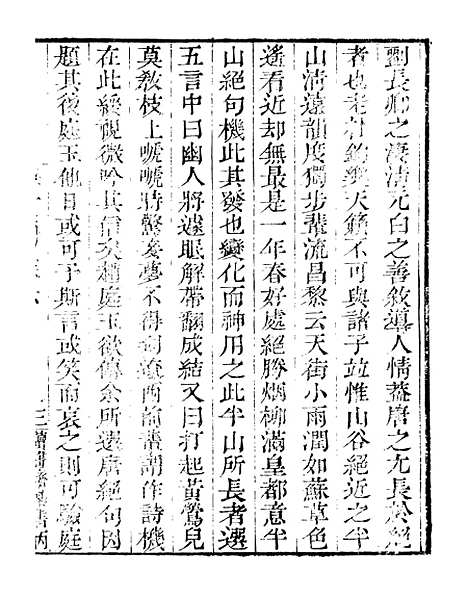 劉長卿之淒清元白之善敘導人情蓋唐之尤長於絕
者也老杜鈞樂天籟不可與諸子並惟山谷絕近之半
山淸遠韻度獨步輩流昌黎云天街小雨潤如蘇草色
遙看近却無最是一年春好處絕勝烟柳滿皇都意半
山絕句機此其發也變化而神用之此半山所長者選
五言中曰幽人將遽眠解帶翻成結又曰打起黃鶯兒
莫敎枝上嗁嗁時驚妾夢不得到遼西前輩謂作詩機
在此緩視微吟其信矣趙庭玉欲傳余所選唐絕句因
題其後庭玉他日或可于斯言或笑而哀之則可 庭
三 讀畫齋叢書丙